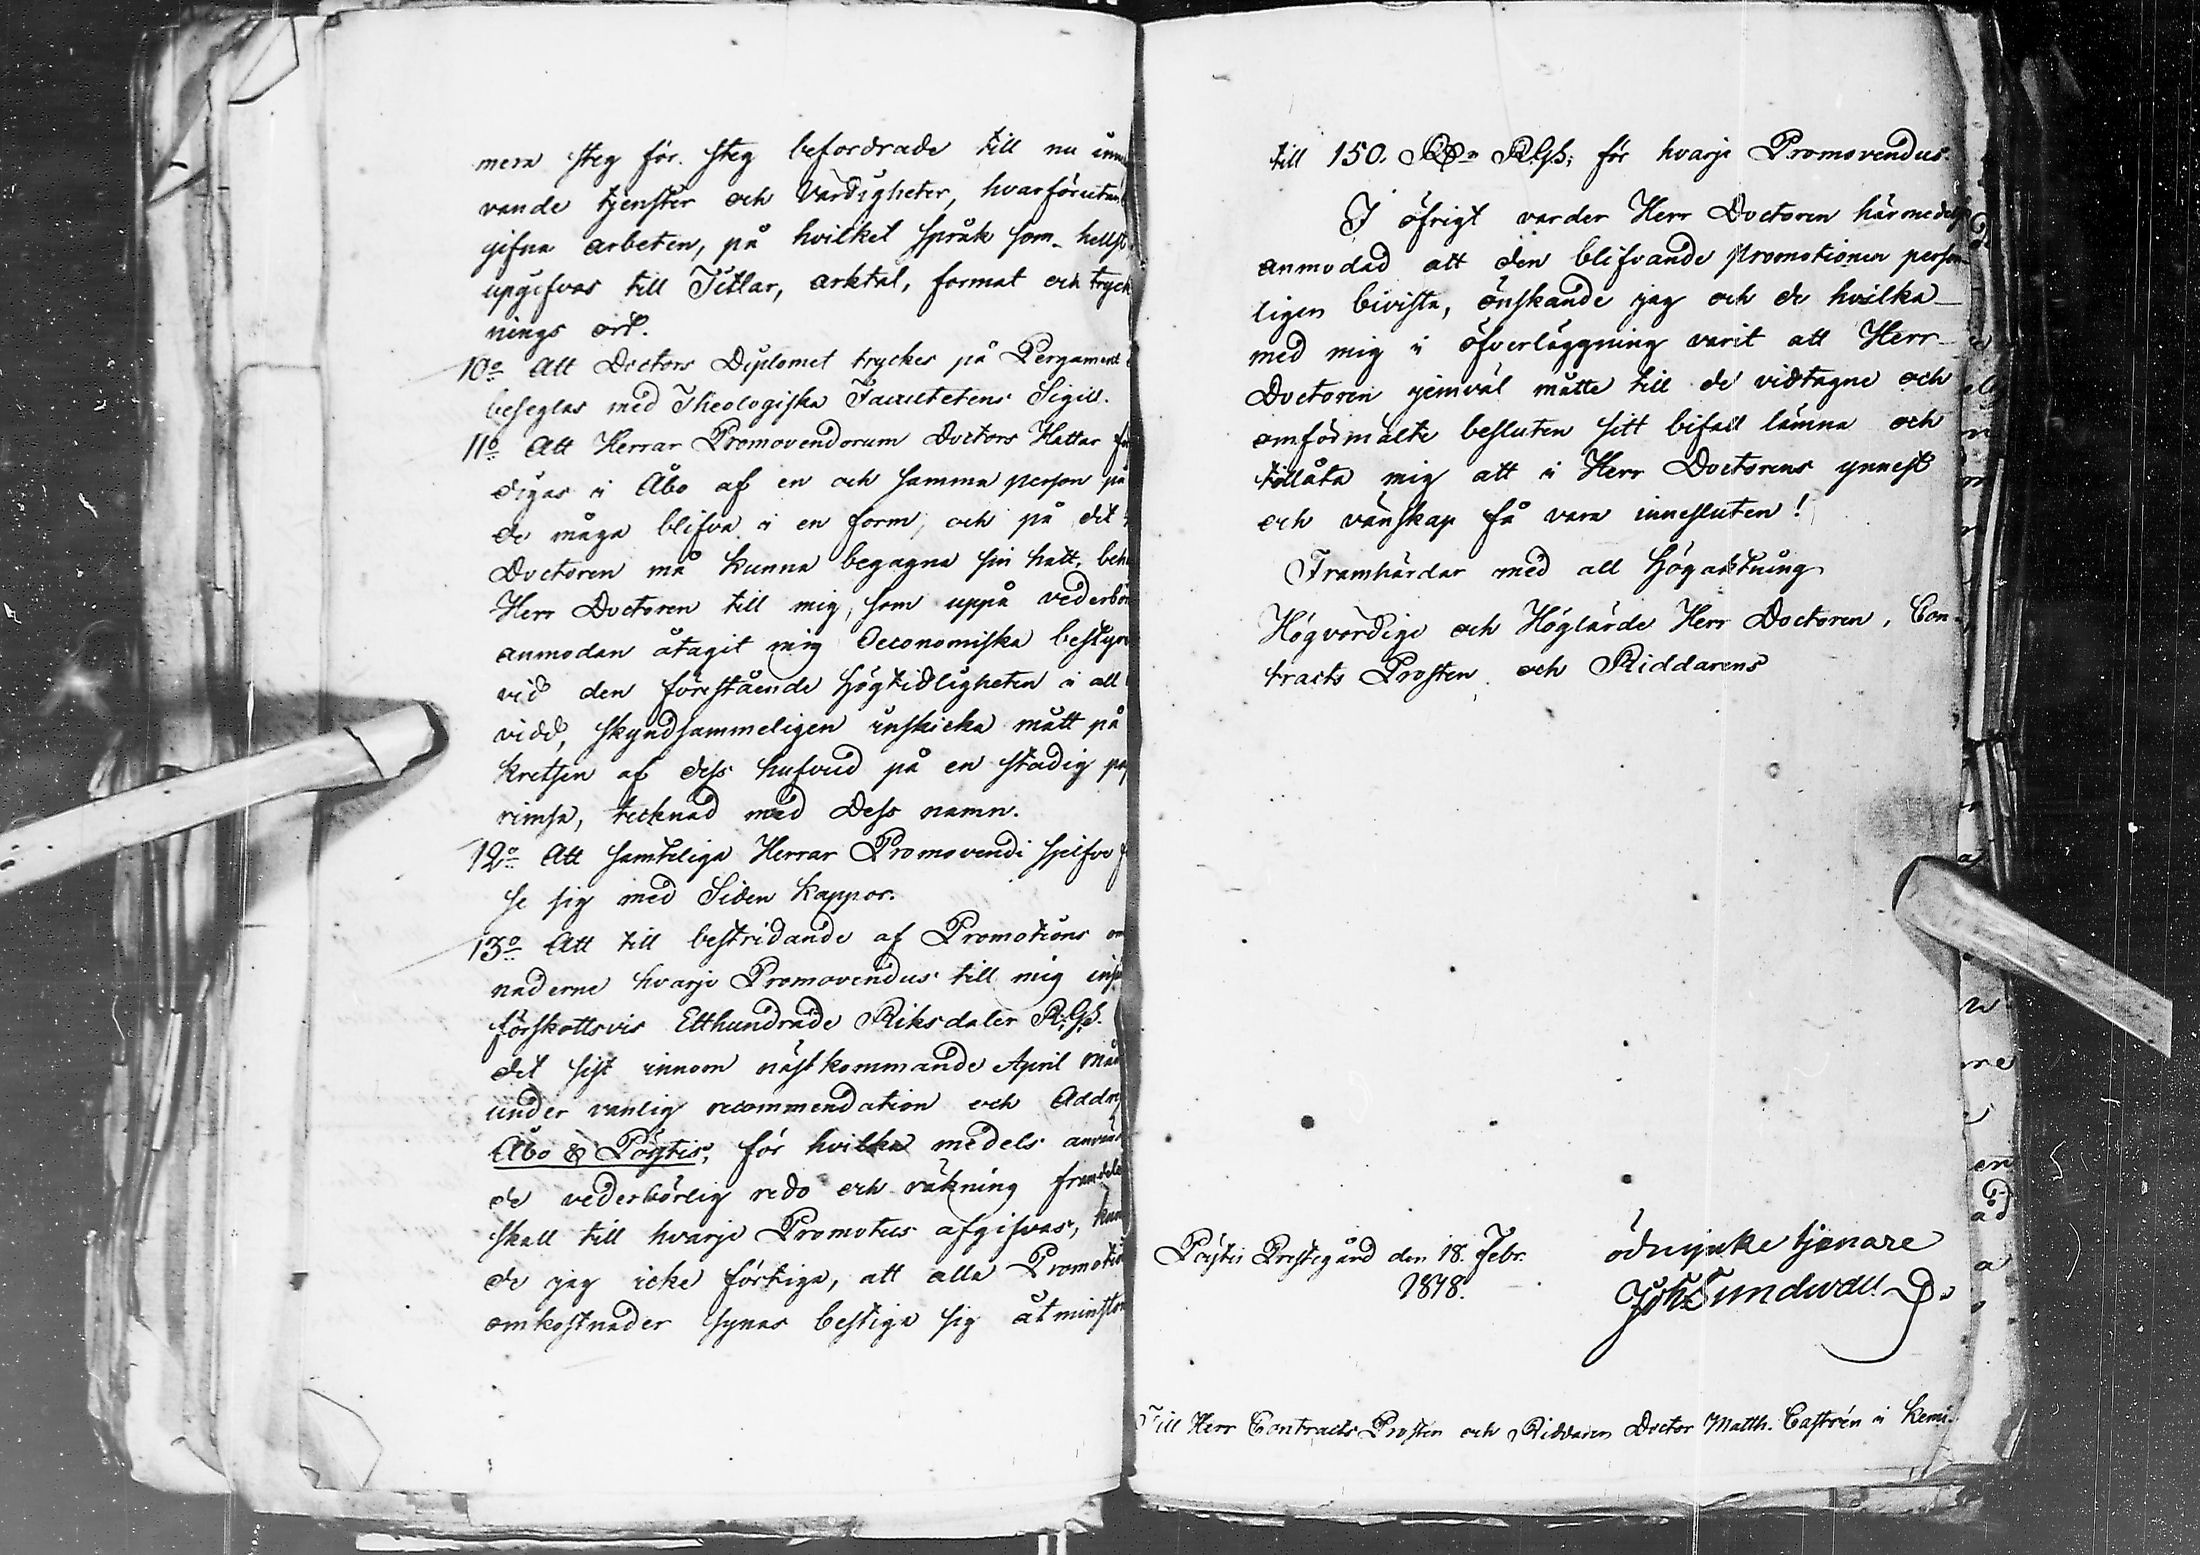 mera steg för steg befordrade till nu inne
vande tjenster och Värdigheter, hvarförutan
gifna arbeten, på hvilket språk som hellst
upgifvas till Titlar, arktal, format och tryck
nings ort.
10:o Att Doctors Diplomet tryckes på Pergament
beseglas med Theologiska Facultetens Sigill.
11:o Att Herrar Promovendorum Doctors Hattar
digas i Åbo af en och samma person på
de måga blifva i en form, och på det
Doctoren må kunna begagna sin hatt, beh
Herr Doctoren till mig, som uppå vederbör
anmodan åtagit mig Oeconomiska bestyre
vid den förestående högtidligheten i all
vidd, skyndsammeligen inskicka mått på
kretsen af dess hufvud på en stadig pap
rimsa, tecknad med Dess namn.
12:o Att samtelige Herrar Promovendi sjelfve f
se sig med Siden Kappor.
13:o Att till bestridande af Promotions om
naderne hvarje Promovendus till mig ins
förskottsvis Etthundrade Riksdaler R:G:S.
det sist innom nästkommande April Mån
under vanlig recommendation och Addre
Åbo & Pöytis, för hvilka medels använd
de vederbörlig redo och räkning framdeles
skall till hvarje Promotus afgifvas, kun
de jag icke förtiga, att alla Promotion
omkostnader synas bestiga sig åtminston
till 150. RGS: för hvarje Promovendus.
I öfrigt varder Herr Doctoren härmedelst
anmodad att den blifvande promotionen person-
ligen bivista, önskande jag och de hvilka
med mig i öfverläggning varit att Herr
Doctoren jemväl måtte till de vidtagne och
omförmälte besluten sitt bifall lämna och
tillåta mig att i Herr Doctorens ynnest
och vänskap få vara innesluten!
Framhärdar med all högaktning
Högvördige och Höglärde Herr Doctoren, Con-
tracts Prosten och Riddarens
Pöytis Prestegård den 18. Febr.
1818.
ödmjuke tjenare
Joh: Sundwall D.
Till Herr Contracts Prosten och Riddaren Doctor Matth. Castrén i Kemi.